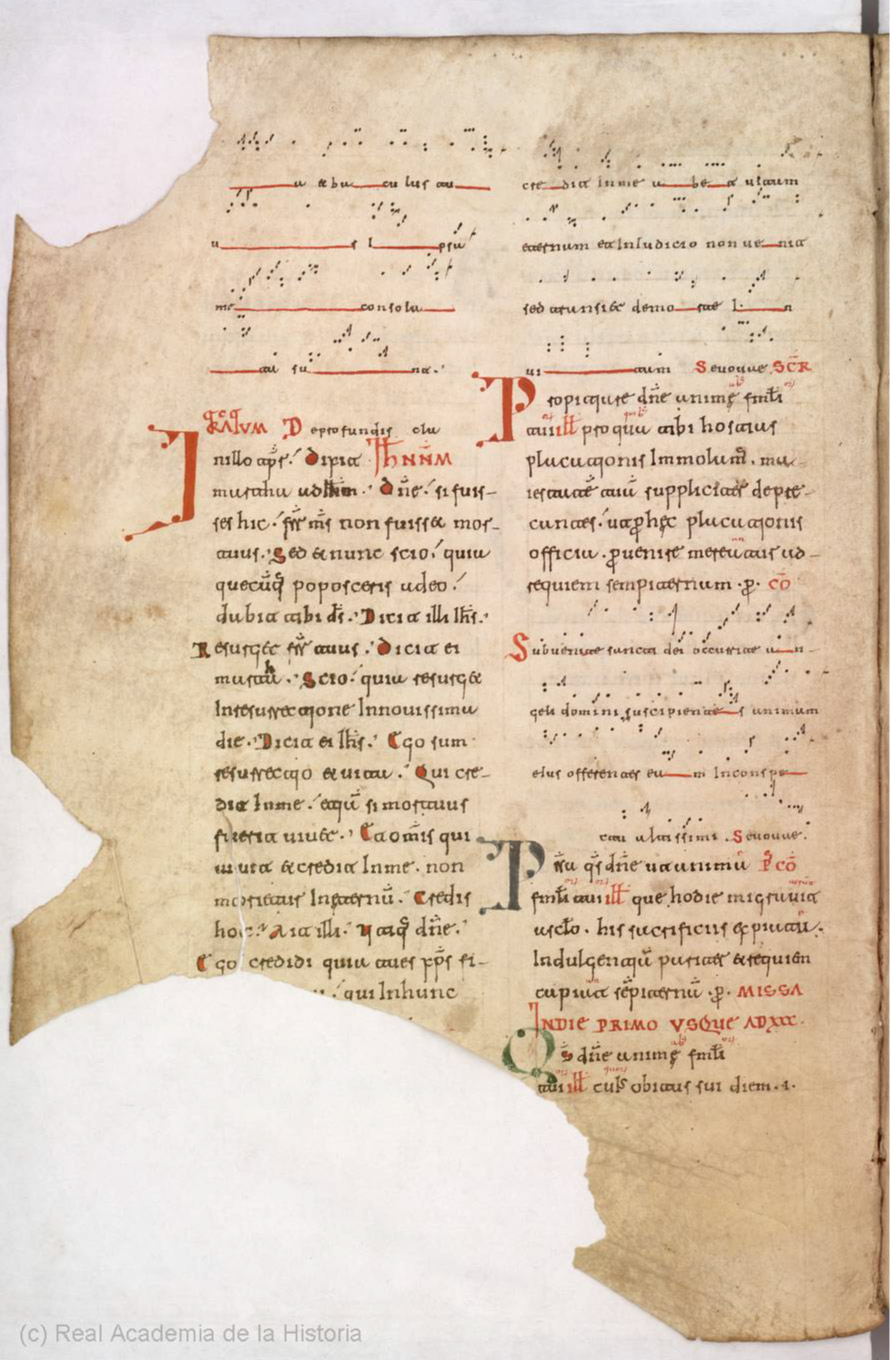 a & ba cu lus tu
u s I psa
me consola
ta su nt.
TRACTUM De profundis cla
IN illo tp̄r. Dixit IOHANNM
martha ad ihm. Dn̄e. si fuis-
ses hic. fr̄ m̄s non fuisset mor-
tuus. Sed & nunc scio. quia
quecūq; poposceris a deo.
dabit tibi d̄s. Dicit illi ih̄s.
Resurget fr̄ tuus. Dicit ei
martha. Scio. quia resurget
In resurrectione In novissima
die. Dicit ei ih̄s. Ego sum
resurrectio & vita. Qui cre-
dit In me. etiā si mortuus
fuerit vivet. Et om̄is qui
vivit & credit In me. non
morietur In eternū. Credis
hoc. Ait illi. Utiq; dn̄e.
Ego credidi quia tu es xp̄s fi-
qui In hunc
cre dit In me a be t vitam
eternum et In iudicio non ve nit
sed transiet de mo rte I n
vi tam Sevovae SCR
Propitiare dn̄e anime fmli
tui ill pro qua tibi hostias
placationis Immolam. ma-
iestatē tuā suppliciter depre-
cantes. ut p hec placationis
officia. pvenire mereatur ad
requiem sempiternam. p. cō
Subvenite sancti dei occurrite a n
geli domini suscipiente s animam
eius offerentes ea m In conspe
ctu altissimi. Sevovae.
Presta qs dn̄e ut animā P cō
fmli tui ill que hodie migravit
a scl̄o. his sacrificiis expiata.
Indulgentiā pariter & requiem
capiat sēpiternā. p. MISSA
INDIE PRIMO VSQUE AD XXX.
Qs dn̄e anime fmli
tui ill cuiꝰ obitus sui diem. i.
(c) Real Academia de la Historia